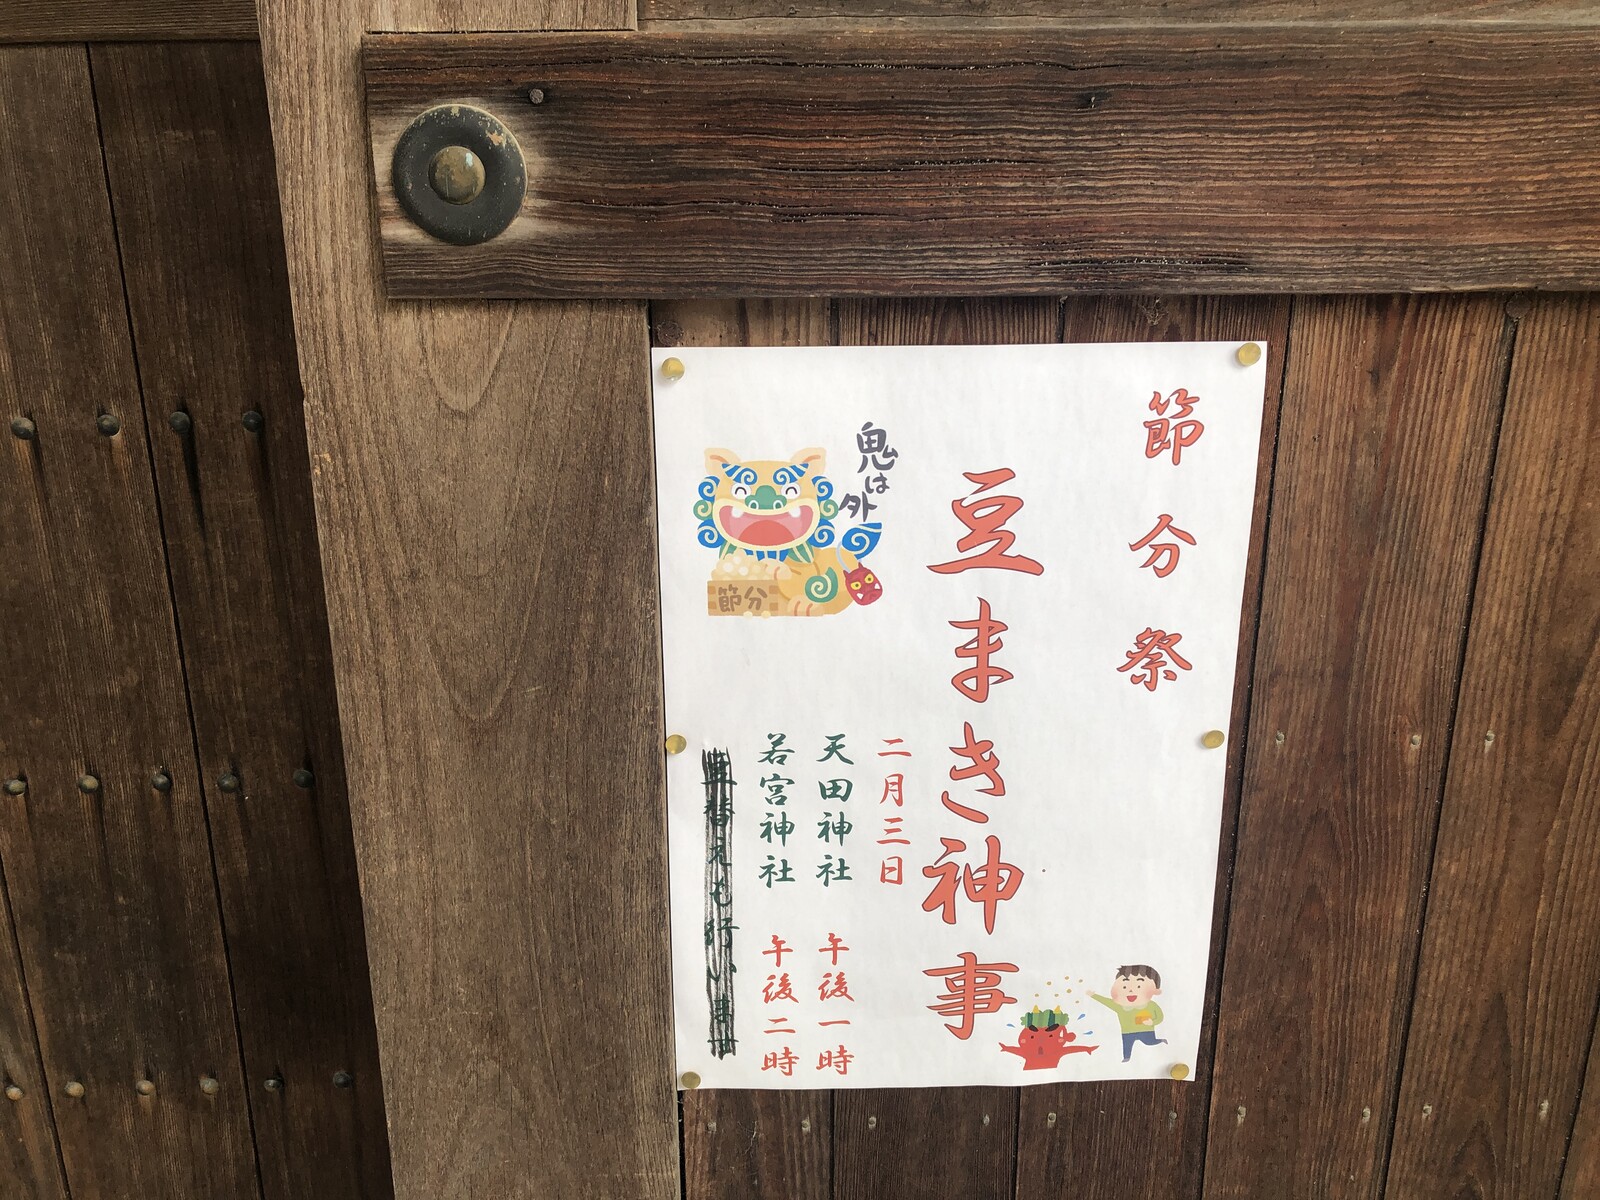 節分祭
豆まき神事
二月三日
天田神社 午後一時
若宮神社 午後二時
替えも行います
鬼は外
節分